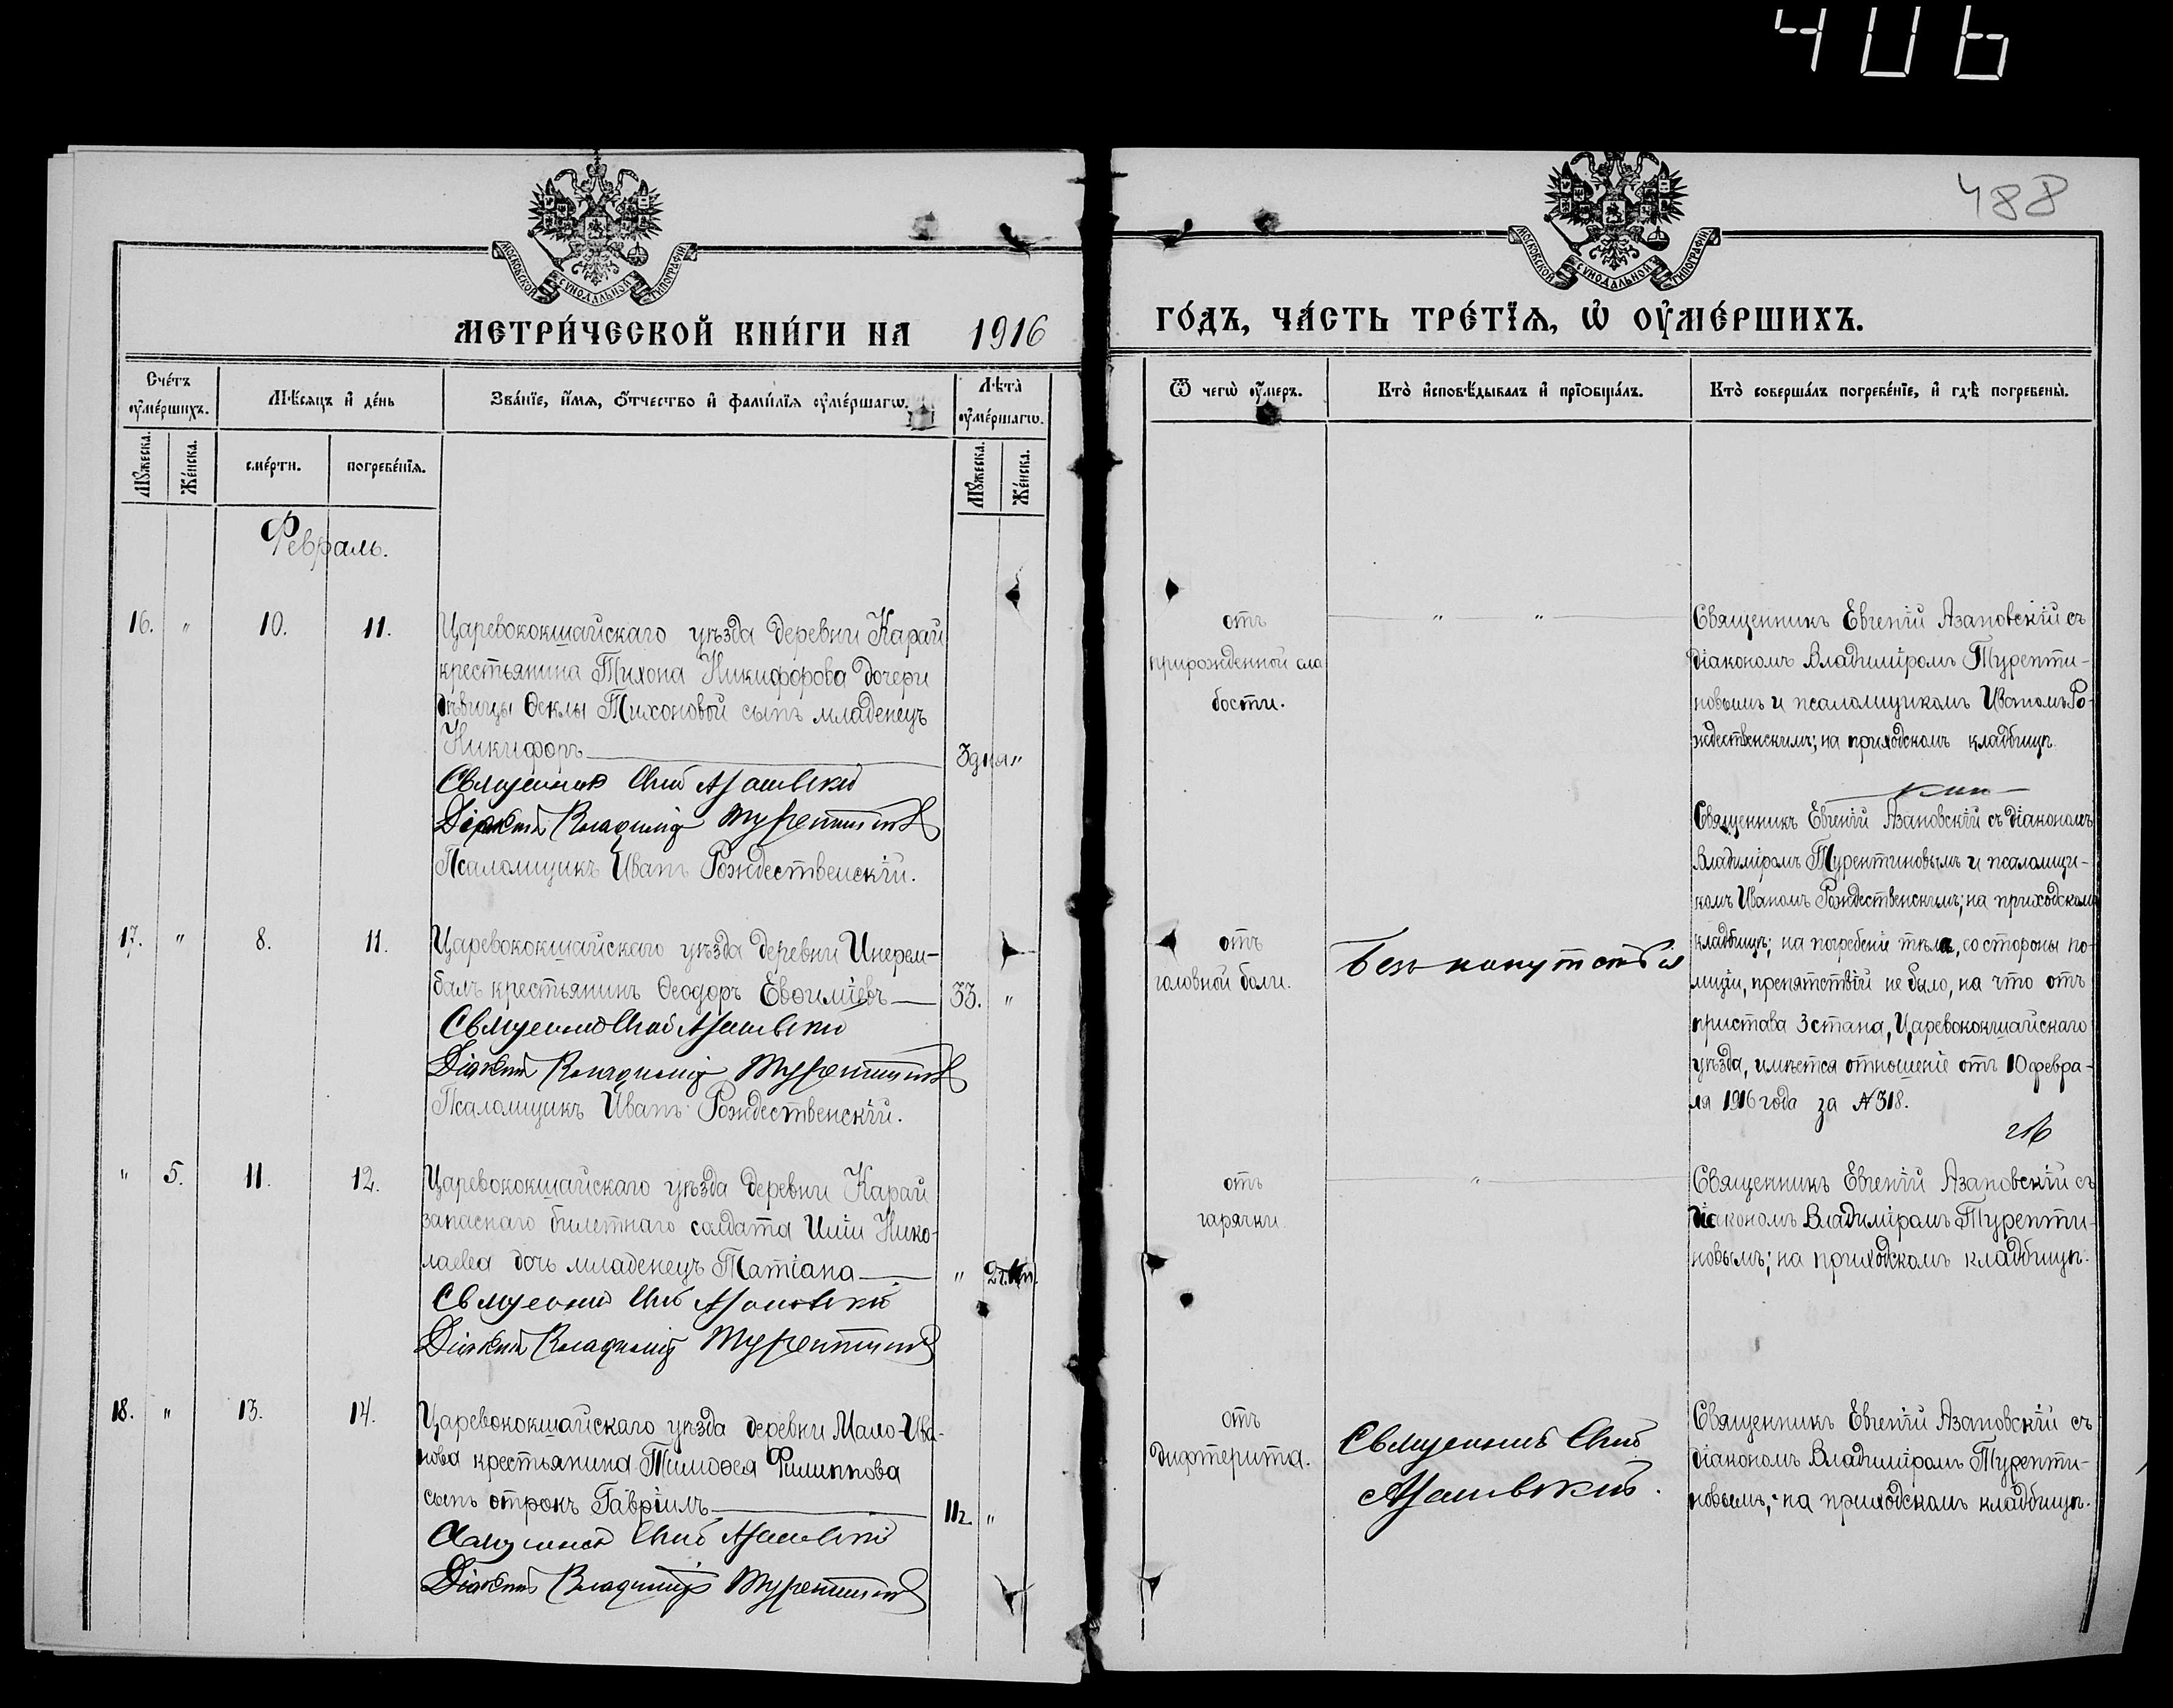 406
488
МОСКОВСКОЙ СѴНОДАЛЬНОЙ ТИПОГРАФІИ
МОСКОВСКОЙ СѴНОДАЛЬНОЙ ТИПОГРАФІИ
МЕТРИ́ЧЕСКОЙ КНИ́ГИ НА 1916 ГО́ДЪ, ЧА́СТЬ ТРЕ́ТЇѦ, Ѡ҆ ОУ҆МЕ́РШИХЪ.
Сче́тъ оу҆ме́ршихъ.
Мѣ́сяцъ и҆ де́нь
Зва́нїе, и҆́мя, ѻ҆́тчество и҆ фами́лїя оу҆ме́ршагѡ.
Лѣ́та оу҆ме́ршагѡ.
Ѿ чегѡ̀ оу҆́меръ.
Кто̀ и҆сповѣ́дывалъ и҆ прїѻбща́лъ.
Кто̀ соверша́лъ погребе́нїе, и҆ гдѣ̀ погребены̀.
Мꙋ́жеска.
Же́нска.
сме́рти.
погребе́нїя.
Мꙋ́жеска.
Же́нска.
Февраль.
16. " 10. 11.
Царевококшайскаго уѣзда деревни Карай
крестьянина Тихона Никифорова дочери
дѣвицы Ѳеклы Тихоновой сынъ младенецъ
Никифоръ
3 дня "
Священникъ Азановскій
Діаконъ Владиміръ Турентиновъ
Псаломщикъ Иванъ Рождественскій.
отъ
прирожденной сла
бости.
" "
Священникъ Евгеній Азановскій съ
діакономъ Владиміромъ Туренти-
новымъ и псаломщикомъ Иваномъ Ро-
ждественскимъ; на приходскомъ кладбищѣ.
17. " 8. 11.
Царевококшайскаго уѣзда деревни Инерем-
балъ крестьянинъ Ѳеодоръ Евѳиміевъ
33. "
Священникъ Азановскій
Діаконъ Владиміръ Турентиновъ
Псаломщикъ Иванъ Рождественскій.
отъ
головной боли.
Безъ напутствія
Священникъ Евгеній Азановскій съ діакономъ
Владиміромъ Турентиновымъ и псаломщи-
комъ Иваномъ Рождественскимъ; на приходскомъ
кладбищѣ; на погребеніе тѣла, со стороны по-
лиціи, препятствій не было, на что отъ
пристава 3 стана, Царевококшайскаго
уѣзда, имѣется отношеніе отъ 10 февра-
ля 1916 года за № 318.
" 5. 11. 12.
Царевококшайскаго уѣзда деревни Карай
запаснаго билетнаго солдата Иліи Нико-
лаева дочь младенецъ Татіана
"
Священникъ Азановскій
Діаконъ Владиміръ Турентиновъ
отъ
гарячки
"
Священникъ Евгеній Азановскій съ
діакономъ Владиміромъ Туренти-
новымъ; на приходскомъ кладбищѣ.
18. " 13. 14.
Царевококшайскаго уѣзда деревни Мало-Ива-
нова крестьянина Тимоѳея Филиппова
сынъ отрокъ Гавріилъ
11 г. "
Священникъ Азановскій
Діаконъ Владиміръ Турентиновъ
отъ
дифтерита.
Священникъ
Азановскій.
Священникъ Евгеній Азановскій съ
діакономъ Владиміромъ Туренти-
новымъ; на приходскомъ кладбищѣ.